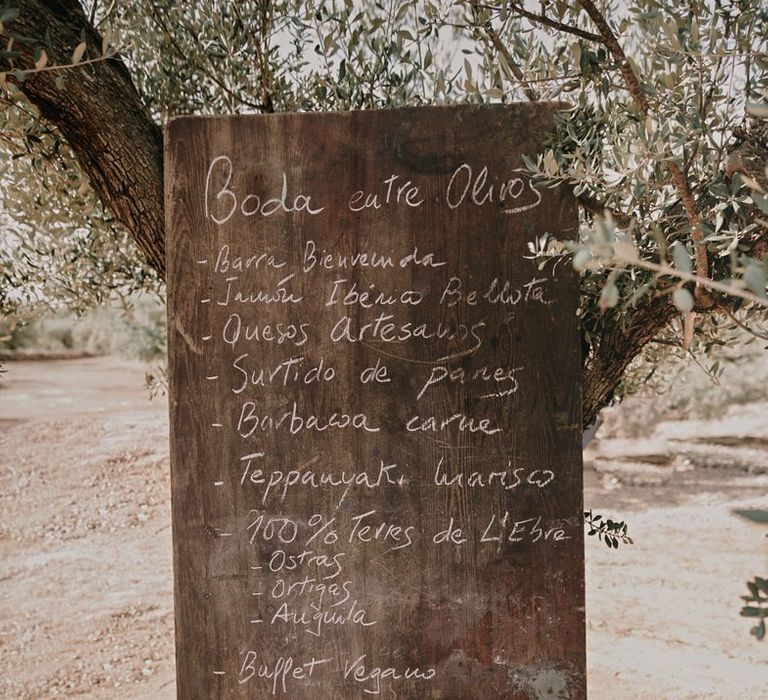 Boda entre Olivos
- Barra Bienvenida
- Jamón Ibérico Bellota
- Quesos Artesanos
- Surtido de panes
- Barbacoa carne
- Teppanyaki marisco
- 100% Terres de L'Ebre
- Ostras
- Ortigas
- Anguila
- Buffet Vegano